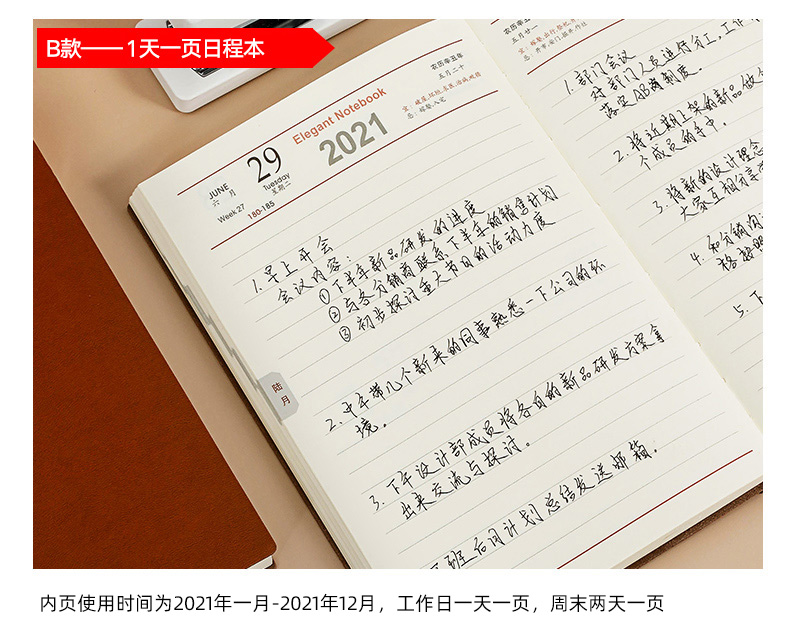 B款——1天一页日程本
JUNE
六 月
29
Tuesday
星期二
Week 27
180-185
Elegant Notebook
2021
农历辛丑年
五月二十
宜:
忌:
1. 早上开会
会议内容:
①下半年新品研发的进度
②与各分销商联系下半年的销售计划
③初步探讨重大节日的活动力度
2. 中午带几个新来的同事熟悉一下公司的环
境。
3. 下午设计部成员将各自的新品研发方案拿
出来交流与探讨。
班后问计划总结发送邮箱。
陆
月
农历辛丑年
五月廿一
宜:
忌:
1. 部门会议
对部门人员进行分工,工作
落实AB岗制度。
2. 将近期上架的新品做
个成员的手中。
3. 将新的设计理念
大家互相分享
4. 和分销商
格按照
5. 下
内页使用时间为2021年一月-2021年12月，工作日一天一页，周末两天一页